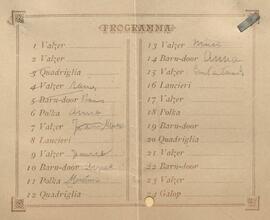 PROGRAMMA
1 Valzer
2 Valzer
3 Quadriglia
4 Valzer
5 Barn-door
6 Polka Anna
7 Valzer
8 Lancieri
9 Valzer
10 Barn-door
11 Polka
12 Quadriglia
13 Valzer
14 Barn-door Anna
15 Valzer
16 Lancieri
17 Valzer
18 Barn-door
19 Valzer
20 Quadriglia
21 Valzer
22 Barn-door
23 Valzer
24 Galop